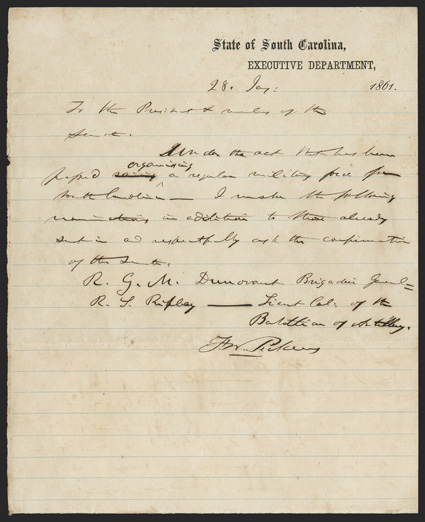 State of South Carolina,
EXECUTIVE DEPARTMENT,
28. Jany: 1861.
To the President & members of the
Senate.
Under the act that has been
passed organising a regular military force for
South Carolina — I make the following
nominations in addition to those already
sent in and respectfully ask the confirmation
of the Senate.
R. G. M. Dunovant Brigadier General
R. S. Ripley — Lieut Col: of the
Battallion of Artillery.
F W Pickens